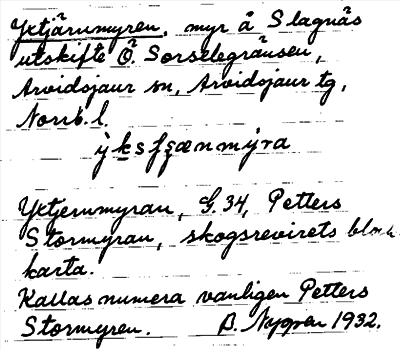 Yxtjärnmyren, myr å Slagnäs
utskifte Ö. Sorselegränsen,
Arvidsjaur sn, Arvidsjaur tg,
Norrb. l.
Yxtjernmyran, G. 34, Petters
Stormyran, skogsrevirets
karta.
Kallas numera vanligen Petters
Stormyren. 1932.